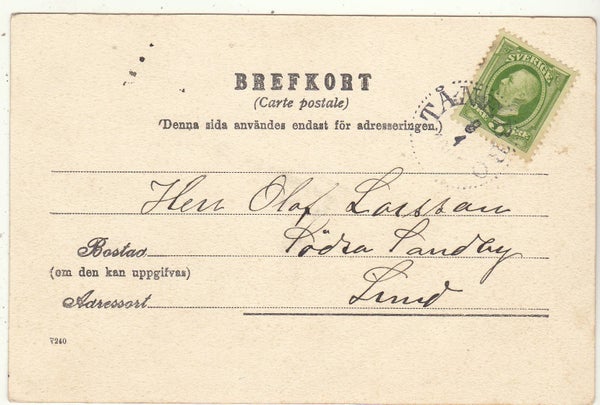 BREFKORT
(Carte postale)
Denna sida användes endast för adresseringen.)
SVERIGE
TÅN
Herr Olof Larsson
Södra Sandby
Bostad
(om den kan uppgifvas)
Lund
Adressort
V240